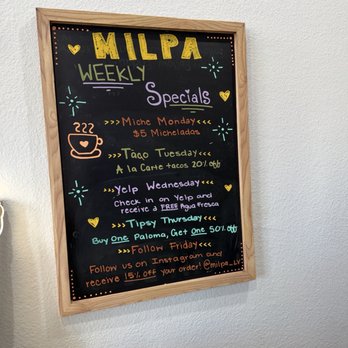 MILPA
WEEKLY
Specials
>>> Miche Monday <<<
$5 Micheladas
>>> Taco Tuesday <<<
A la Carte tacos 20% off
>>> Yelp Wednesday <<<
Check in on Yelp and
receive a FREE Agua Fresca
>>> Tipsy Thursday <<<
Buy One Paloma, Get One 50% off
>>> Follow Friday <<<
Follow us on Instagram and
receive 15% off your order! @milpa_LV